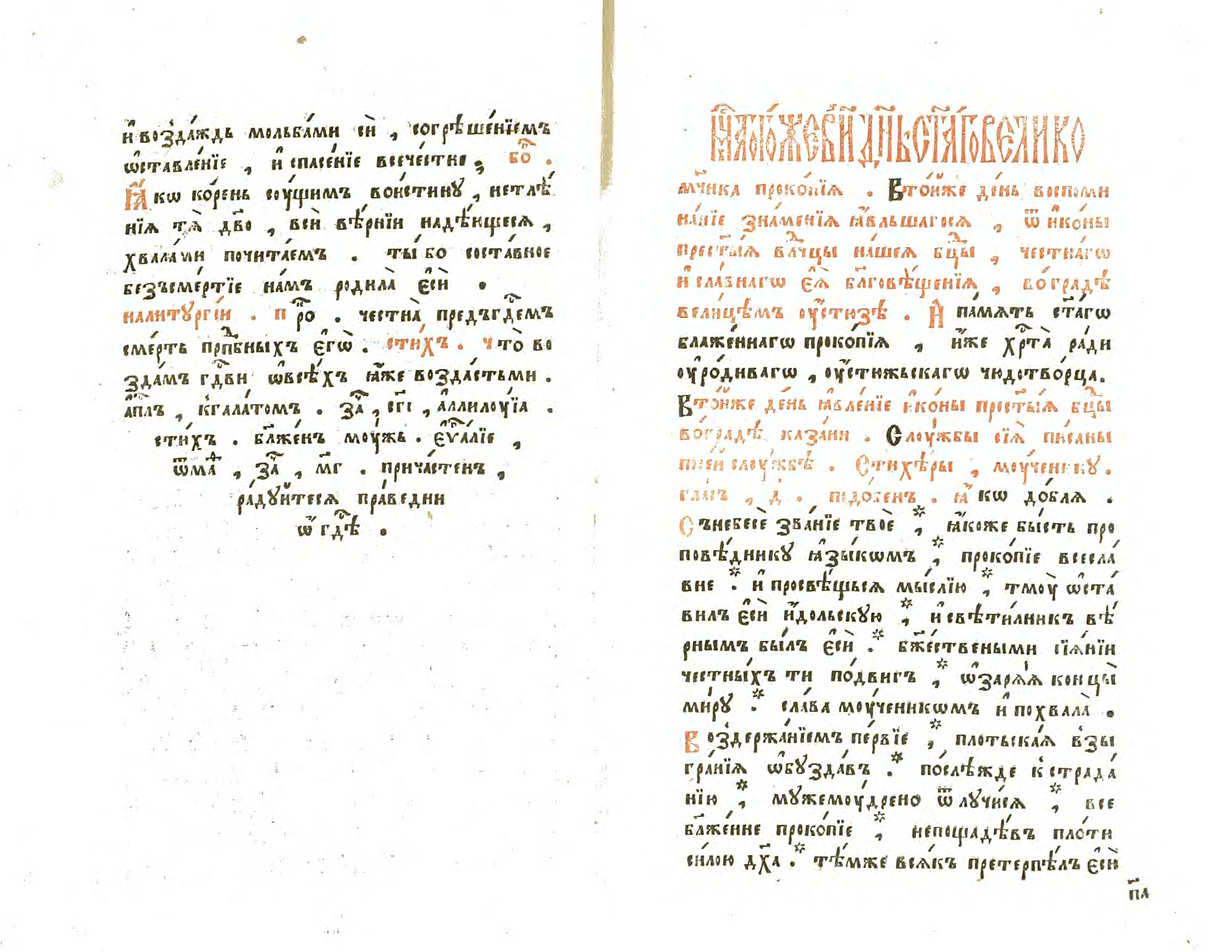 и҆ воз̾да́ждь мольба́ми сѝ , согрѣше́нїємъ
ѡ҆ставле́нїе , и҆ спасе́нїе всече́стно , бо҃ .
Ꙗ҆́кω ко́рень соу́щимъ вои́стину , нетлѣ́
нїѧ тѧ̀ дв҃о , всѝ вѣ́рнїи надѣ́ющесѧ ,
хвала́ми почита́емъ . ты́ бо соста́вное
безъсме́ртїе на́мъ родила̀ є҆сѝ .
налитоургі́и . про҃ . честна̀ предъгд҇емъ
сме́рть прп҇бныхъ є҆гѡ̀ . сти́хъ . что̀ во
зда́мъ гд҇ви ѡ҆всѣ́хъ ꙗ҆́же возда́стьми .
а҆пл҇ъ , кгала́томъ . за҇ , сг҃і , а҆ллилоу́їа .
сти́хъ . бл҃же́нъ моу́жь . є҆ѵⷢ҇а́лїе ,
ѿ маⷴ , за҇ , мг҃ . прича́стенъ ,
ра́дуйтесѧ пра́ведни
ѡ҆ гд҇ѣ .
мц҇а тогоже в҃и дн҃ь ст҃аго велико
мч҃ника проко́пїѧ . Вто́йже де́нь воспоми
на́нїе зна́менїѧ ꙗ҆́вльшагосѧ , ѿ и҆ко́ны
прест҃ы́ѧ влⷣчцы на́шеѧ бц҃ы , честна́гѡ
и҆ сла́внагѡ є҆ѧ̀ бл҃гові́щенїѧ , во гра́дѣ
вели́цѣмъ оу҆́стюзѣ . А҆ па́мѧть ст҃а́гѡ
блаже́ннагѡ проко́пїѧ , и҆́же хрⷭ҇та̀ ра́ди
оу҆ро́дивагѡ , оу҆стю́жьскагѡ чюдотво́рца.
Вто́йже де́нь ꙗ҆вле́нїе и҆ко́ны прест҃ы́ѧ бц҃ы
во гра́дѣ каза́ни . Слоу́жбы сїѧ̀ пи́саны
по се́й слоу́жбѣ . Стихе́ры , моу́ченику.
гла́съ , д҃ . подо́бенъ . ꙗ҆́кω до́блѧ .
Сънебесѐ зва́нїе твоѐ , ꙗ҆́коже бы́сть про
повѣ́днику ꙗ҆зы́кωмъ , проко́пїе всесла́
вне . и҆ просвѣ́щьсѧ мы́слїю , тмоу̀ ѡ҆ста́
вилъ є҆сѝ и҆́дольскую , и҆ свѣти́лникъ вѣ́
рнымъ бы́лъ є҆сѝ . бж҇ествеными сїѧ́нїи
че́стныхъ тѝ по́двигъ , ѡ҆зарѧ́ѧ концы̀
ми́ру . сла́ва моу́ченикωмъ и҆ похвала̀ .
Воздержа́нїемъ пе́рвїе , пло́тьскаѧ взы
гра́нїѧ ѡ҆бузда́въ . послѣ́жде к̾ страда́
нїю , му́жемоу́дрено ѿлучи́сѧ , все
бл҃же́нне проко́пїе , непощадѣ́въ пло́ти
си́лою дх҃а . тѣ́мже всѧ́къ претерпѣ́лъ є҆сѝ
па҃